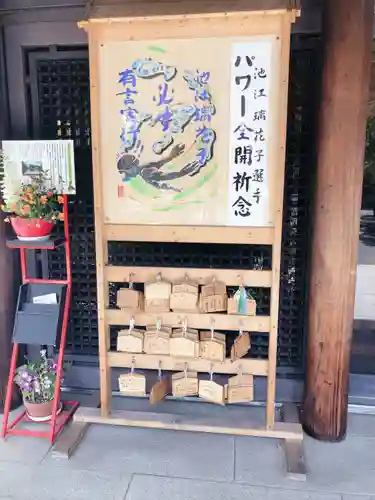 池江 璃花子選手
パワー全開祈念
池江璃花子
有言実行